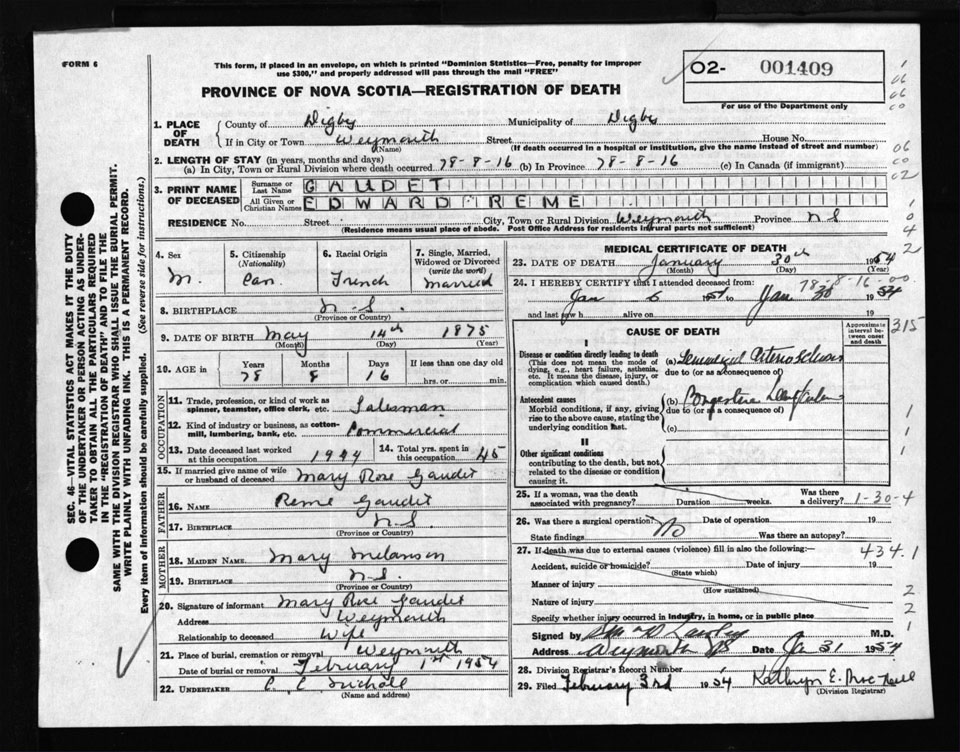 FORM 6
This form, if placed in an envelope, on which is printed "Dominion Statistics—Free, penalty for improper
use $300," and properly addressed will pass through the mail "FREE"
O2- 001409
For use of the Department only
PROVINCE OF NOVA SCOTIA—REGISTRATION OF DEATH
1. PLACE OF DEATH
County of Digby Municipality of Digby
If in City or Town Weymouth Street House No.
(Name) (If death occurred in a hospital or institution, give the name instead of street and number)
2. LENGTH OF STAY (in years, months and days)
(a) In City, Town or Rural Division where death occurred 78-8-16 (b) In Province 78-8-16 (c) In Canada (if immigrant)
3. PRINT NAME OF DECEASED
Surname or Last Name GAUDET
All Given or Christian Names EDWARD REME
RESIDENCE No. Street City, Town or Rural Division Weymouth Province N S
(Residence means usual place of abode. Post Office Address for residents in rural parts not sufficient)
4. Sex M.
5. Citizenship (Nationality) Can.
6. Racial Origin French
7. Single, Married, Widowed or Divorced (write the word) Married
8. BIRTHPLACE N.S.
(Province or Country)
9. DATE OF BIRTH May 14th 1875
(Month) (Day) (Year)
10. AGE in Years Months Days If less than one day old
78 8 16 hrs. or min.
OCCUPATION
11. Trade, profession, or kind of work as spinner, teamster, office clerk, etc. Salesman
12. Kind of industry or business, as cotton-mill, lumbering, bank, etc. Commercial
13. Date deceased last worked at this occupation 1944
14. Total yrs. spent in this occupation 45
15. If married give name of wife or husband of deceased Mary Rose Gaudet
FATHER
16. NAME Reme Gaudet
17. BIRTHPLACE N.S.
(Province or Country)
MOTHER
18. MAIDEN NAME Mary Melanson
19. BIRTHPLACE N.S.
(Province or Country)
20. Signature of informant Mary Rose Gaudet
Address Weymouth
Relationship to deceased Wife
21. Place of burial, cremation or removal Weymouth
Date of burial or removal February 1st 1954
22. UNDERTAKER
(Name and address)
MEDICAL CERTIFICATE OF DEATH
23. DATE OF DEATH January 30th 1954
(Month) (Day) (Year)
78-8-16-00
24. I HEREBY CERTIFY that I attended deceased from:
Jan 6 1954 to Jan 30 1954
and last saw h alive on 19
CAUSE OF DEATH
Approximate interval between onset and death
315
I
Disease or condition directly leading to death (a)
(This does not mean the mode of dying, e.g., heart failure, asthenia, etc. It means the disease, injury, or complication which caused death.)
due to (or as a consequence of)
Antecedent causes (b) Congestive
Morbid conditions, if any, giving rise to the above cause, stating the underlying condition last.
due to (or as a consequence of)
(c)
II
Other significant conditions
contributing to the death, but not related to the disease or condition causing it.
25. If a woman, was the death associated with pregnancy? Duration weeks. Was there a delivery?
1-30-4
26. Was there a surgical operation? No Date of operation 19
State findings Was there an autopsy?
27. If death was due to external causes (violence) fill in also the following:—
434.1
Accident, suicide or homicide? Date of injury 19
(State which)
Manner of injury
(How sustained)
Nature of injury
Specify whether injury occurred in industry, in home, or in public place
Signed by M.D.
Address Weymouth NS Date Jan 31 1954
28. Division Registrar's Record Number
29. Filed February 3rd 1954 Kathryn E. MacNeill
(Division Registrar)
SEC. 46—VITAL STATISTICS ACT MAKES IT THE DUTY
OF THE UNDERTAKER OR PERSON ACTING AS UNDER-
TAKER TO OBTAIN ALL THE PARTICULARS REQUIRED
IN THE "REGISTRATION OF DEATH" AND TO FILE THE
SAME WITH THE DIVISION REGISTRAR WHO SHALL ISSUE THE BURIAL PERMIT.
WRITE PLAINLY WITH UNFADING INK. THIS IS A PERMANENT RECORD.
Every item of information should be carefully supplied. (See reverse side for instructions.)